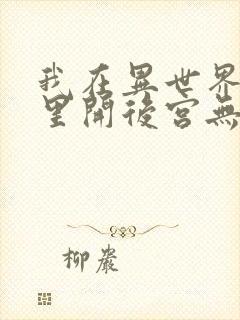 我在異世界
里開後宮無
柳巖